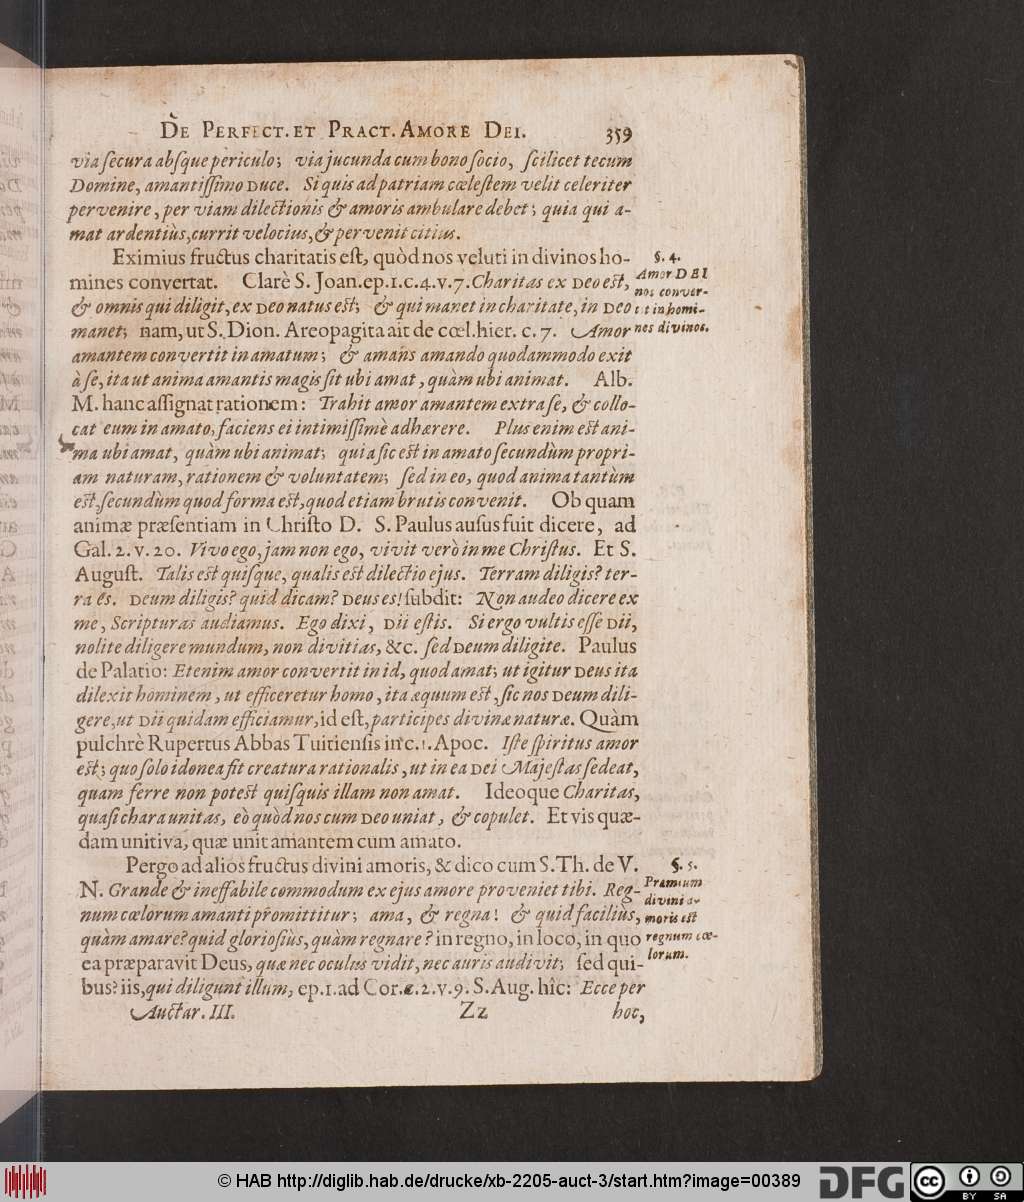 DE PERFECT. ET PRACT. AMORE DEI. 359
via ſecura abſque periculo; via jucunda cum bono ſocio, ſcilicet tecum
Domine, amantiſſimo DUCE. Si quis ad patriam cœleſtem velit celeriter
pervenire, per viam dilectionis & amoris ambulare debet; quia qui a-
mat ardentiùs, currit velocius, & pervenit citius.
Eximius fructus charitatis eſt, quòd nos veluti in divinos ho-
mines convertat. Clarè S. Joan. ep. 1. c. 4. v. 7. Charitas ex DEO eſt,
& omnis qui diligit, ex DEO natus eſt; & qui manet in charitate, in DEO
manet; nam, ut S. Dion. Areopagita ait de cœl. hier. c. 7. Amor
amantem convertit in amatum; & amans amando quodammodo exit
à ſe, ita ut anima amantis magis ſit ubi amat, quàm ubi animat. Alb.
M. hanc aſſignat rationem: Trahit amor amantem extra ſe, & collo-
cat eum in amato, faciens ei intimiſſimè adhærere. Plus enim eſt ani-
ma ubi amat, quàm ubi animat; quia ſic eſt in amato ſecundùm propri-
am naturam, rationem & voluntatem; ſed in eo, quod anima tantùm
eſt, ſecundùm quod forma eſt, quod etiam brutis convenit. Ob quam
animæ præſentiam in Chriſto D. S. Paulus auſus fuit dicere, ad
Gal. 2. v. 20. Vivo ego, jam non ego, vivit verò in me Chriſtus. Et S.
Auguſt. Talis eſt quiſque, qualis eſt dilectio ejus. Terram diligis? ter-
ra es. DEUM diligis? quid dicam? DEUS es! ſubdit: Non audeo dicere ex
me, Scripturas audiamus. Ego dixi, DII eſtis. Si ergo vultis eſſe DII,
nolite diligere mundum, non divitias, &c. ſed DEUM diligite. Paulus
de Palatio: Etenim amor convertit in id, quod amat; ut igitur DEUS ita
dilexit hominem, ut efficeretur homo, ita æquum eſt, ſic nos DEUM dili-
gere, ut DII quidam efficiamur, id eſt, participes divinæ naturæ. Quàm
pulchrè Rupertus Abbas Tuitienſis in c. 1. Apoc. Iſte ſpiritus amor
eſt; quo ſolo idonea fit creatura rationalis, ut in ea DEI Majeſtas ſedeat,
quam ferre non poteſt quiſquis illam non amat. Ideoque Charitas,
quaſi chara unitas, eò quòd nos cum DEO uniat, & copulet. Et vis quæ-
dam unitiva, quæ unit amantem cum amato.
Pergo ad alios fructus divini amoris, & dico cum S. Th. de V.
N. Grande & ineffabile commodum ex ejus amore proveniet tibi. Reg-
num cœlorum amanti promittitur; ama, & regna! & quid faciliùs,
quàm amare? quid glorioſiùs, quàm regnare? in regno, in loco, in quo
ea præparavit Deus, quæ nec oculus vidit, nec auris audivit; ſed qui-
bus? iis, qui diligunt illum, ep. 1. ad Cor. c. 2. v. 9. S. Aug. hîc: Ecce per
Auctar. III. Zz hoc,
§. 4.
Amor DEI
nos conver-
tit in homi-
nes divinos.
§. 5.
Præmium
divini a-
moris eſt
regnum cœ-
lorum.
© HAB http://diglib.hab.de/drucke/xb-2205-auct-3/start.htm?image=00389
DFG
cc BY SA